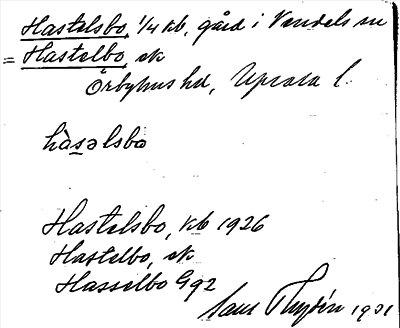 Hastelsbo, 1/4 kb, gård i Vendels sn
= Hastelbo, ek
Örbyhus hd, Uppsala l.
hàsəlsbo
Hastelsbo, kb 1926
Hastelbo, ek
Hasselbo G92
1931